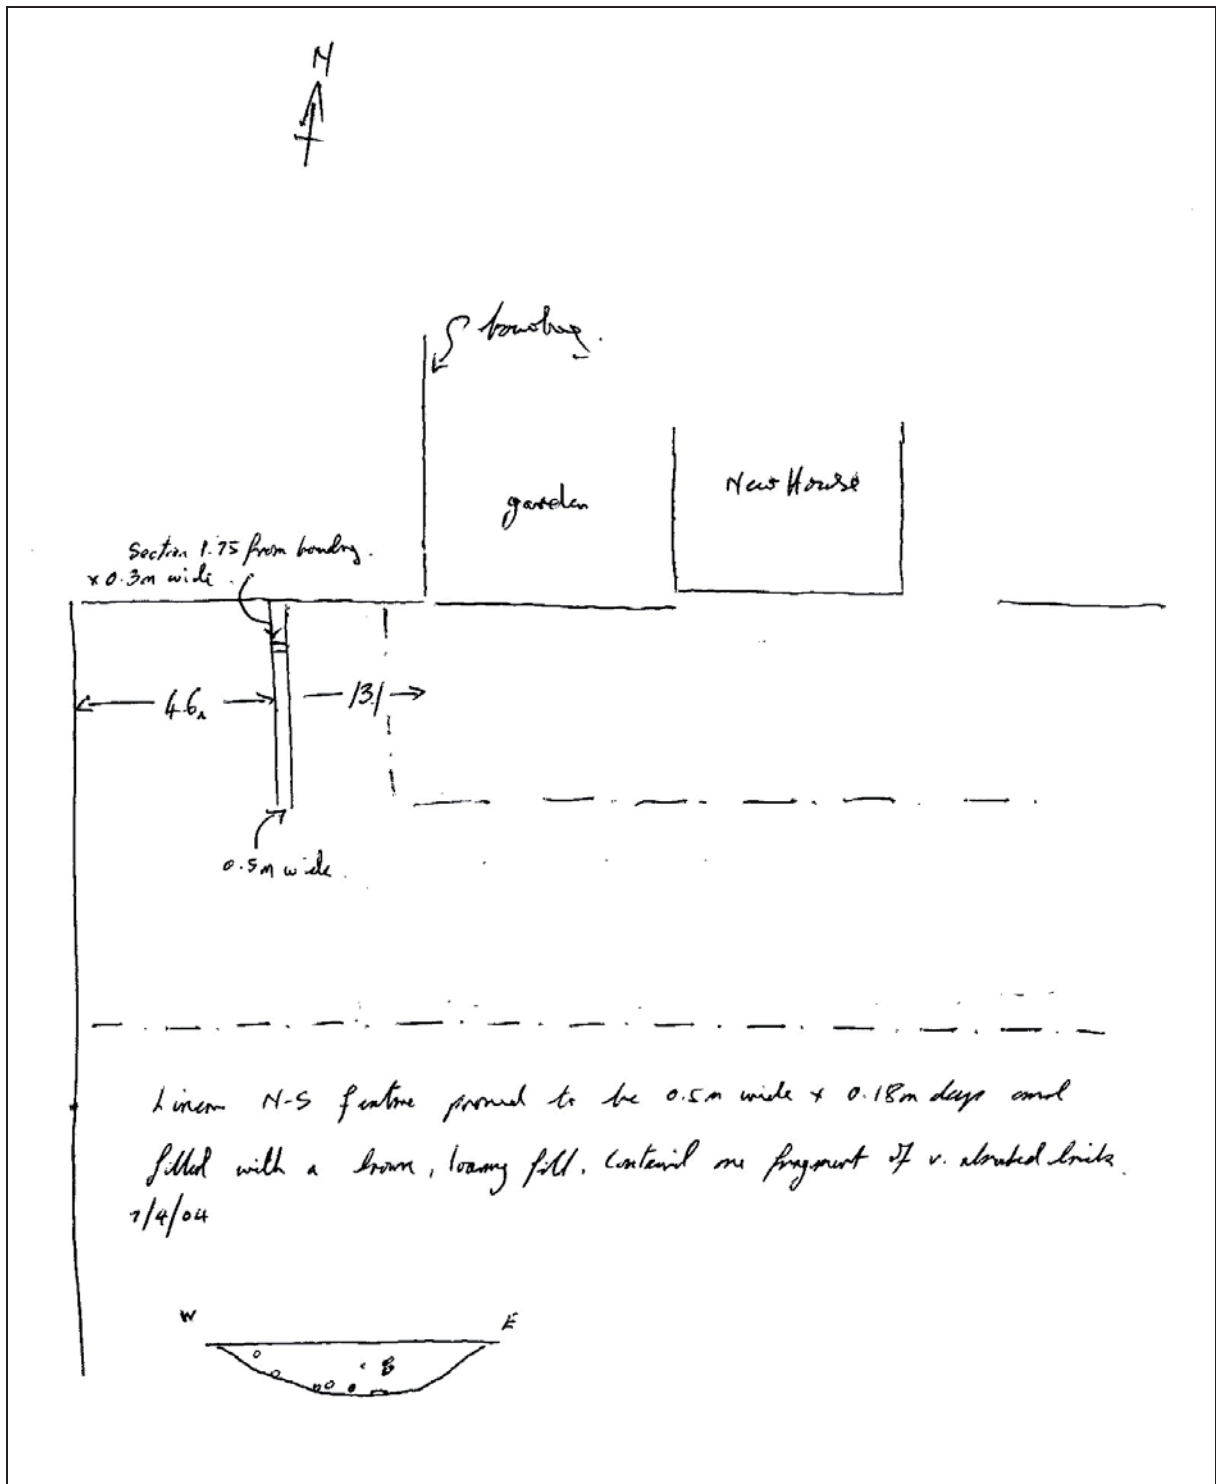 N
boundary.
garden
New House
Section 1.75 from boundry.
x 0.3m wide.
4.6m
3.1
0.5m wide.
Linear N-S feature proved to be 0.5m wide x 0.18m deep and
filled with a brown, loamy fill. Contained one fragment of v. abraded brick.
7/4/04
W
E
B